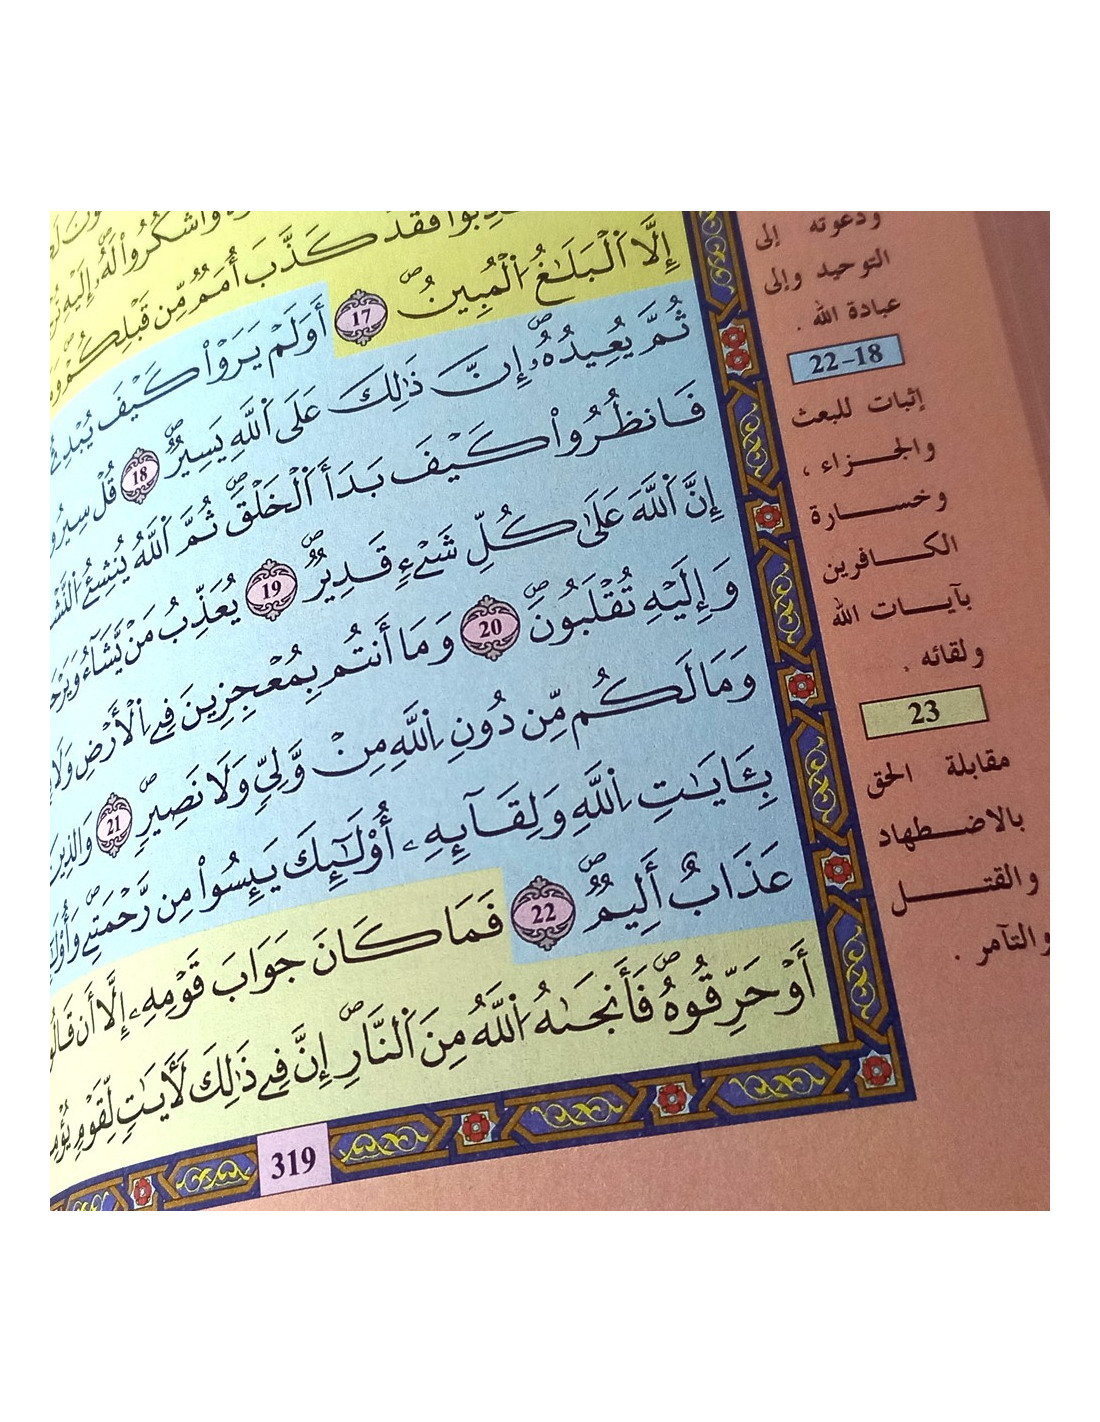 وَاشْكُرُواْ لَهُۥٓ إِلَيْهِ
فَقَدْ كَذَّبَ أُمَمٌ مِّن قَبْلِكُمْ
إِلَّا اَ۬لْبَلَٰغُ اُ۬لْمُبِينُۖ 17 أَوَلَمْ يَرَوْاْ كَيْفَ يُبْدِئُ
ثُمَّ يُعِيدُهُۥٓۖ إِنَّ ذَٰلِكَ عَلَى اَ۬للَّهِ يَسِيرٞۖ 18 قُلْ سِيرُواْ
فَانظُرُواْ كَيْفَ بَدَأَ اَ۬لْخَلْقَۖ ثُمَّ اَ۬للَّهُ يُنشِئُ
إِنَّ اَ۬للَّهَ عَلَىٰ كُلِّ شَےْءٖ قَدِيرٞۖ 19 يُعَذِّبُ مَنْ يَّشَآءُ
وَإِلَيْهِ تُقْلَبُونَۖ 20 وَمَا أَنتُم بِمُعْجِزِينَ فِے اِ۬لْأَرْضِ وَلَا
وَمَا لَكُم مِّن دُونِ اِ۬للَّهِ مِنْ وَّلِيّٖ وَلَا نَصِيرٖۖ 21 وَالذِينَ
بِـَٔايَٰتِ اِ۬للَّهِ وَلِقَآئِهِۦٓ أُوْلَٰٓئِكَ يَئِسُواْ مِن رَّحْمَتِے
عَذَابٌ أَلِيمٞۖ 22 فَمَا كَانَ جَوَابَ قَوْمِهِۦٓ إِلَّا أَن
أَوْ حَرِّقُوهُ فَأَنج۪ىٰهُ اُ۬للَّهُ مِنَ اَ۬لنَّارِۖ إِنَّ فِے ذَٰلِكَ لَأٓيَٰتٖ لِّقَوْمٖ
319
ودعوته إلى
التوحيد وإلى
عبادة الله .
22-18
إثبات للبعث
والجزاء ،
وخسارة
الكافرين
بآيات الله
ولقائه .
23
مقابلة الحق
بالاضطهاد
والقتل
والتآمر .